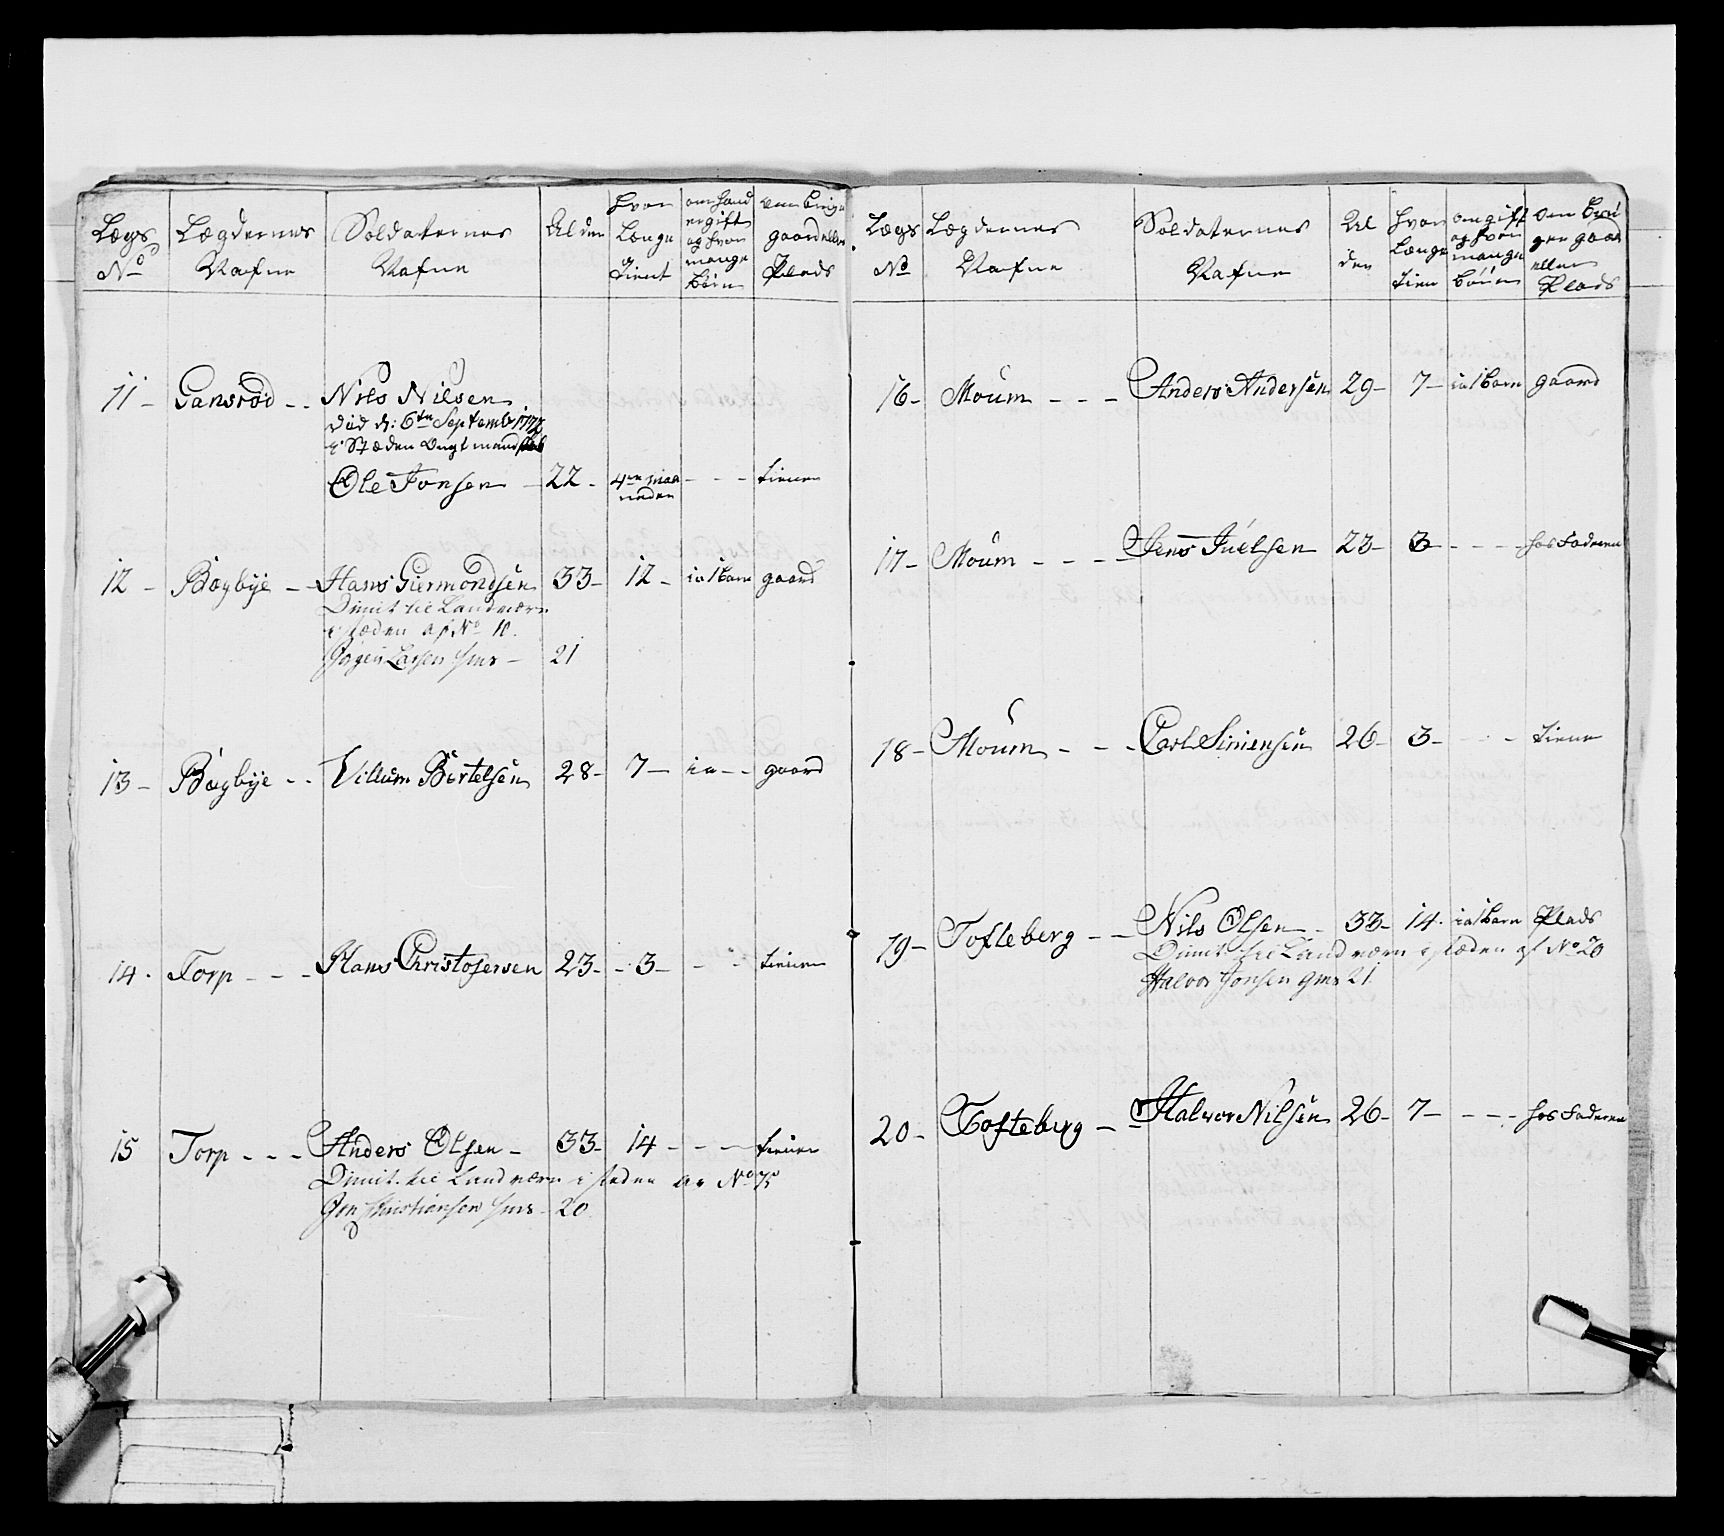 Lægs No Lægdernes Nafne Soldaternes Nafne Alder hvor Længe tient om hand er gift og hvor mange börn om bruger gaard eller Plads
11 - Gansröd - - Nils Nilsen
död d: 6te Septemb: 1772
i Stæden
Ole Jonsen - 22 - 4re maa neder - - - tiener
12 - Bøgbye - Hans Giermondsen 33 - 12 - ia 1 barn gaard
Dimit til Landværn
i stæden af No 10.
Jøgen Larsen - 21
13 - Bøgbye - - Villum Bertelsen 28 - 7 - ia - - gaard
14 - Torp - - - Hans Christofersen 23 - - 3 - - - tiener
15 Torp - - - Anders Olsen - 33 - 14 - - - tiener
Dimit til Landværn i steden av No 75
Jon Christiansen - 20
Lægs No Lægdernes Nafne Soldaternes Nafne Alder hvor Længe tien om gift og hvor mange börn om bruger gaard eller Plads
16 - Moum - - - Anders Andersen 29 - 7 - ia 1 barn gaard
17 - Moum - - - - Jens Juelsen 23 - 3 - - - - hos Faderen
18 - Moum - - - Carl Simensen 26 - 3 - - - tiener
19 - Tofteberg - - Nils Olsen - 33 - 14 - ia 1 barn Plads
Dimit til Landværn i stæden af No 20
Halvor Jonsen 21
20 - Tofteberg - Halvor Nilsen 26 - 7 - - - - hos Faderen